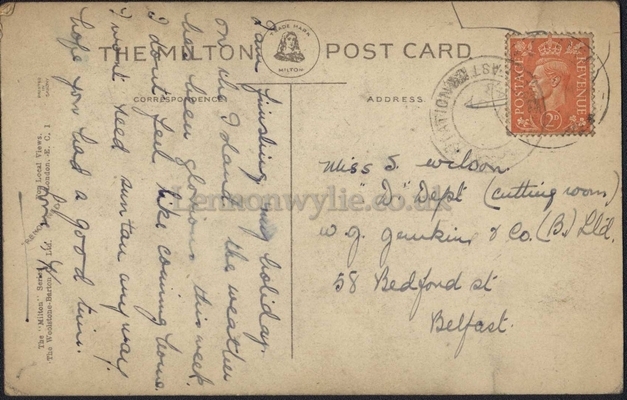 THE MILTON POST CARD
TRADE MARK
MILTON
CORRESPONDENCE
ADDRESS
I am finishing my holiday
on the Island the weather
has been glorious this week.
I don't feel like coming home.
I won't need sun tan anyway!
hope you had a good time.
Miss S. Wilson
"D" Dept (Cutting room)
W. J. Jenkins & Co. (B.) Ltd.
58 Bedford St
Belfast.
POSTAGE
REVENUE
2D
The "Milton" Series
The Woolstone-Barton Co. Ltd. London, E.C. 1
Local Views.
lennonwylie.co.uk